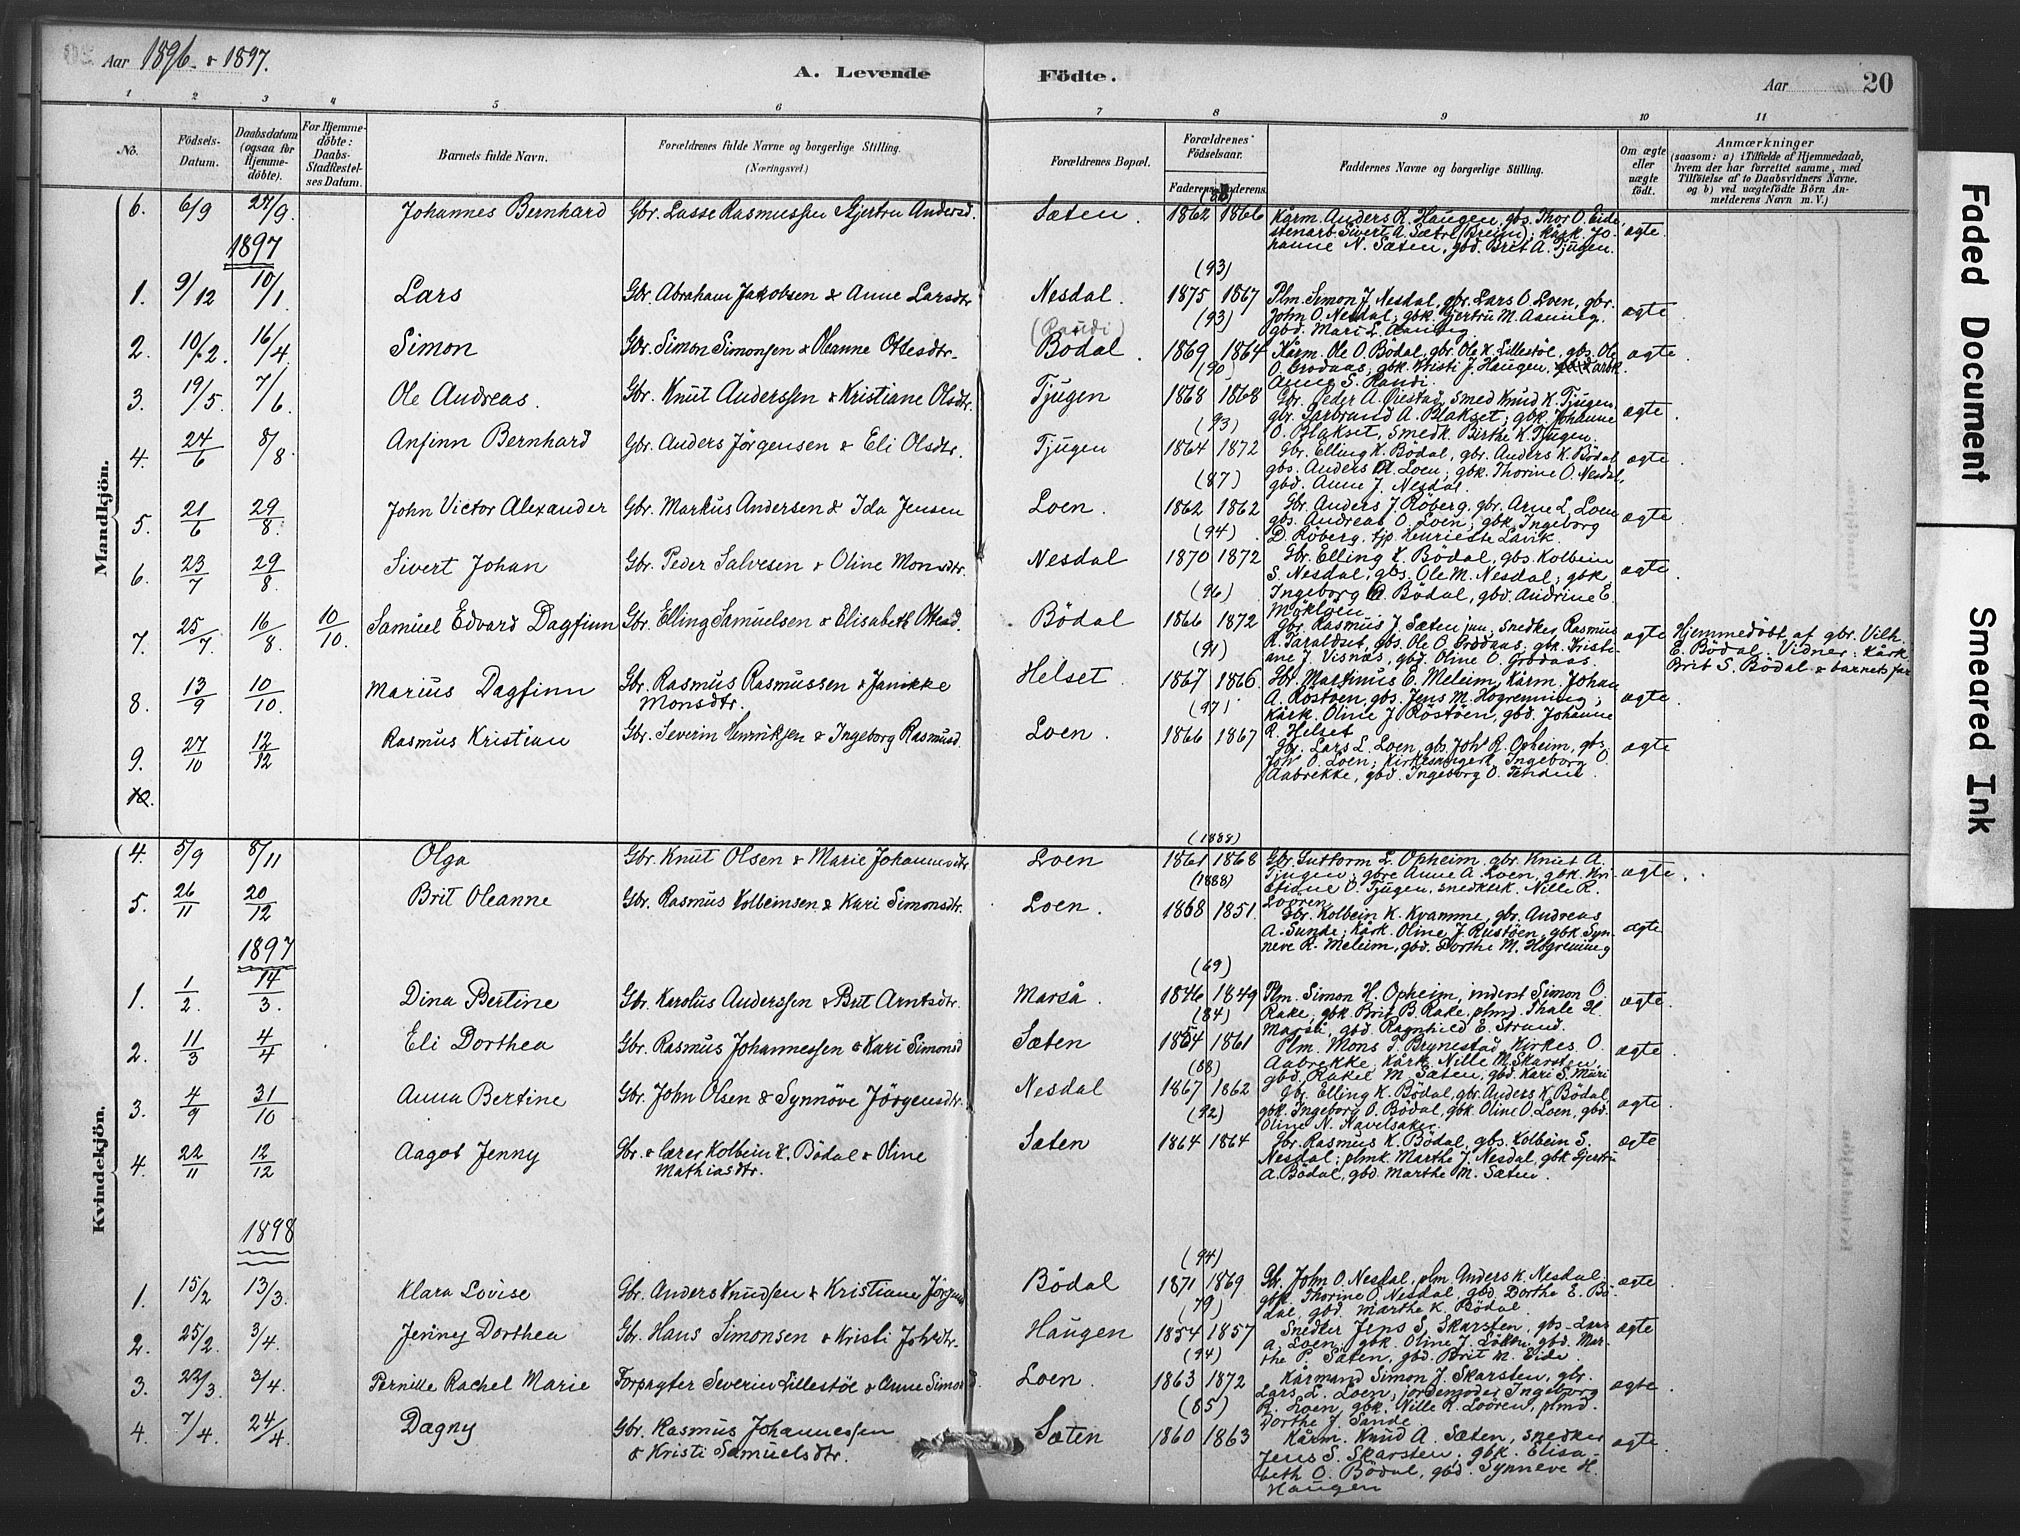 Aar 1896 & 1897.
A. Levende Födte.
Aar 20
1 2 3 4 5 6 7 8 9 10 11
No.
Födsels-Datum.
Daabsdatum (ogsaa for Hjemmedöbte).
For Hjemmedöbte: Daabs-Stadfæstelses Datum.
Barnets fulde Navn.
Forældrenes fulde Navne og borgerlige Stilling. (Næringsvei.)
Forældrenes Bopæl.
Forældrenes Födselsaar.
Faderens. Moderens.
Faddernes Navne og borgerlige Stilling.
Om ægte eller uægte födt.
Anmærkninger
(saasom: a) i Tilfælde af Hjemmedaab, hvem der har forrettet samme, med Tilföielse af to Daabsvidners Navne. og b) ved uægtefödte Börn Anmelderens Navn m. V.)
Mandkjön.
6. 6/9 27/9 Johannes Bernhard Gbr. Lasse Rasmussen Gjertru Andersd. Sæten. 1862 1866 Kårm. Anders R. Haugen, gbs. Thor O. Eide,
stenarb. Sivert A. Sætre (Breim); kårk. Jo-
hanne N. Sæten, gbd. Brit A. Tjugen. ægte.
1897
1. 9/12 10/1 Lars Gbr. Abraham Jakobsen & Anne Larsdtr Nesdal. (93) 1875 1867 Plm. Simon J. Nesdal, gbr. Lars O. Loen, gbr.
John O. Nesdal; gbk. Gjertru M. Aaning,
gbd. Mari L. Aaning. ægte.
2. 10/2. 16/4 Simon Gbr. Simon Simonsen & Oleanne Ottesdtr. (Raudi) Bödal. (93) 1869 1864 Kårm. Ole O. Bödal, gbr. Ole K. Lillestöl, gbs. Ole
O. Grodaas; gbk. Kristi J. Haugen, kårk.
Anne S. Raudi. ægte.
3. 19/5. 7/6 Ole Andreas. Gbr. Knut Anderssen & Kristiane Olsdtr. Tjugen (90) 1868 1868 Gbr. Peder A. Gustad, smed Knud K. Tjugen,
gbr. Tarbrand A. Blakset; gbk. Johanne
O. Blakset, smedk. Birthe K. Tjugen. ægte.
4. 24/6 8/8 Anfinn Bernhard Gbr. Anders Jörgensen & Eli Olsdtr. Tjugen (93) 1864 1872 Gbr. Elling K. Bödal, gbr. Anders K. Bödal
gbs. Anders A. Loen; gbk. Thorine O. Nesdal,
gbd. Anne J. Nesdal. ægte.
5. 21/6 29/8. John Victor Alexander Gbr. Markus Andersen & Ida Jensen Loen. (87) 1862 1862 Gbr. Anders J. Röberg, gbr. Arne L. Loen
gbs. Andreas O. Loen; gbk. Ingeborg
D. Röberg, tjp. Henriette Lavik. ægte.
6. 23/7 29/8. Sivert Johan Gbr. Peder Salvesen & Oline Monsdtr. Nesdal (94) 1870 1872 Gbr. Elling K. Bödal, gbs. Kolbein
S. Nesdal, gbs. Ole M. Nesdal; gbk.
Ingeborg O. Bödal, gbd. Andrine E.
Möklöen ægte.
7. 25/7. 16/8. 10/10. Samuel Edvard Dagfinn Gbr. Elling Samuelsen & Elisabeth Ottesd. Bödal (96) 1866 1872 Gbr. Rasmus J. Sæten jun., snedker Rasmus
R. Taraldset, gbs. Ole O. Grodaas, gbk. Kristi-
ane J. Visnæs, gbd. Oline O. Grodaas. ægte Hjemmedöbt af gbr. Vilh.
E. Bödal. Vidner: Kårk
Brit S. Bödal & barnets far
8. 13/9 10/10. Marius Dagfinn Gbr. Rasmus Rasmussen & Janikke
Monsdtr. Helset. (91) 1867 1866. Gbr. Martinus E. Meleim, kårm. Johan
A. Röstöen, gbs. Jens M. Hogrenning;
kårk. Oline J. Röstöen, gbd. Johanne
R. Helset ægte.
9. 27/10 12/12 Rasmus Kristian Gbr. Severin Henriksen & Ingeborg Rasmusd. Loen. (97) 1866 1867 Gbr. Lars L. Loen, gbs. Joh. R. Opheim, gbs.
Joh. O. Loen; kirkesangerk. Ingeborg O.
Aabrekke, gbd. Ingeborg O. Tenden. ægte
10.
Kvindekjön.
4. 5/9 8/11 Olga Gbr. Knut Olsen & Marie Johannesdtr Loen (1888) 1861 1868 Gbr. Guttorm L. Opheim, gbr. Knut A.
Tjugen; gbre Anne A. Loen, gbk. Kri-
stiane O. Tjugen, snedkerk. Nille R.
Looren ægte.
5. 26/11 20/12 Brit Oleanne Gbr. Rasmus Kolbeinsen & Kari Simonsdtr. Loen. (1888) 1868 1851. Gbr. Kolbein K. Kvamme, gbr. Andreas
A. Sunde; kårk. Oline J. Rustöen, gbk. Syn-
neve R. Meleim, gbd. Dorthe M. Hogrenning ægte
1897
1. 1/2. 14/3. Dina Bertine Gbr. Karolus Anderssen & Brit Arntsdtr. Marså. (69) 1846 1849 Plm. Simon H. Opheim, inderst Simon O.
Rake; gbk. Brit B. Rake, plmd. Thale H.
Marså, gbd. Ragnhild E. Strand. ægte.
2. 11/3 4/4 Eli Dorthea Gbr. Rasmus Johannessen & Kari Simonsd Sæten (84) 1854 1861 Plm. Mons T. Brynestad, Kirkes. O.
Aabrekke, kårk. Nille M. Skarsten,
gbd. Rakel M. Sæten, gbd. Kari S. Muri ægte.
3. 4/9 31/10 Anna Bertine Gbr. John Olsen & Synnöve Jörgensdtr. Nesdal (88) 1867 1862 Gbr. Elling K. Bödal, gbr. Anders K. Bödal
gbk. Ingeborg O. Bödal, gbk. Oline O. Loen, gbd.
Oline N. Havelsaker. ægte.
4. 22/11 12/12 Aagot Jenny Gbr. & lærer Kolbein K. Bödal & Oline
Mathiasdtr. Sæten (92) 1864 1864 Gbr. Rasmus K. Bödal, gbs. Kolbein S.
Nesdal; plmk. Marthe J. Nesdal, gbk. Gjertru
A. Bödal, gbd. Marthe M. Sæten. ægte
1898
1. 15/2 13/3. Klara Lovise Gbr. Anders Knudsen & Kristiane Jörgensd Bödal (94) 1871 1869 Gbr. John O. Nesdal, plm. Anders K. Nesdal.
gbk. Thorine O. Nesdal, gbd. Dorthe E. Bö-
dal, gbd. Marthe K. Bödal. ægte
2. 25/2. 3/4. Jenny Dorthea Gbr. Hans Simonsen & Kristi Johsdtr. Haugen (79) 1854 1857 Snedker Jens S. Skarsten, gbs. Lars
A. Loen; gbk. Oline J. Löken, gbd. Mar-
the P. Sæten, gbd. Brit M. Eide. ægte
3. 22/3. 3/4. Pernille Rachel Marie Forpagter Severin Lillestöl & Anne Simonsd Loen (94) 1863 1872 Kårmand Simon J. Skarsten, gbr.
Lars L. Loen; jordemoder Ingeborg
R. Loen, gbk. Nille R. Looren, plmd.
Dorthe J. Sande ægte.
4. 7/4. 24/4. Dagny Gbr. Rasmus Johannessen
& Kristi Samuelsdtr. Sæten (85) 1860 1863 Kårm. Knud A. Sæten, snedker
Jens S. Skarsten; gbk. Elisa-
beth O. Bödal, gbd. Synneve H.
Haugen ægte.
Faded Document
Smeared Ink